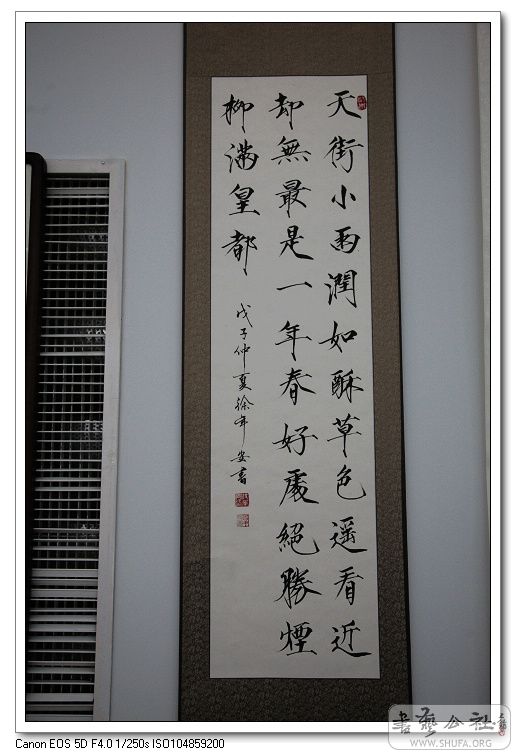 天街小雨潤如酥草色遥看近
却無最是一年春好處絕勝煙
柳滿皇都
戊子仲夏徐年安書
Canon EOS 5D F4.0 1/250s ISO104859200
書藝公社
WWW.SHUFA.ORG